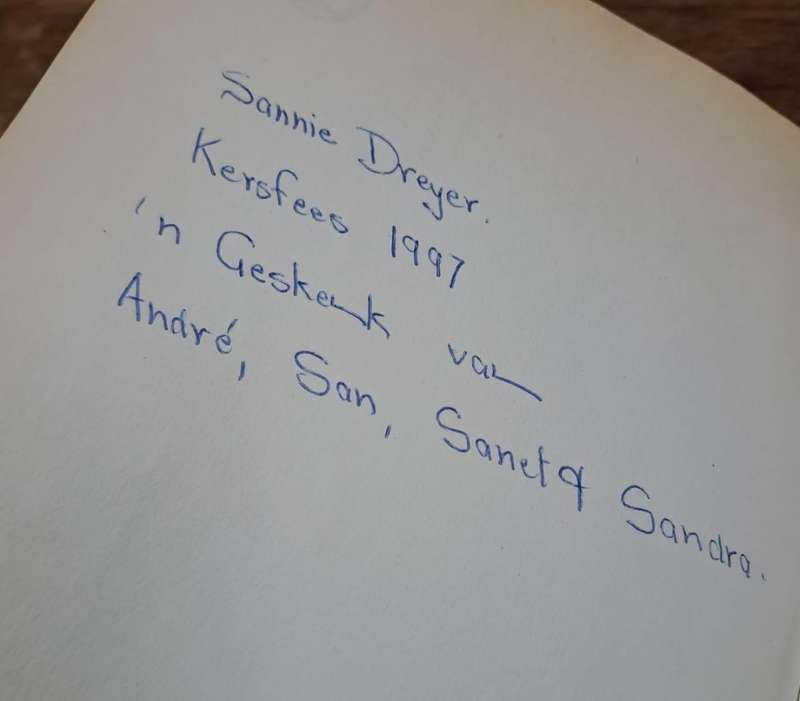 Sannie Dreyer.
Kersfees 1997
'n Geskenk van
André, San, Sanet & Sandra.